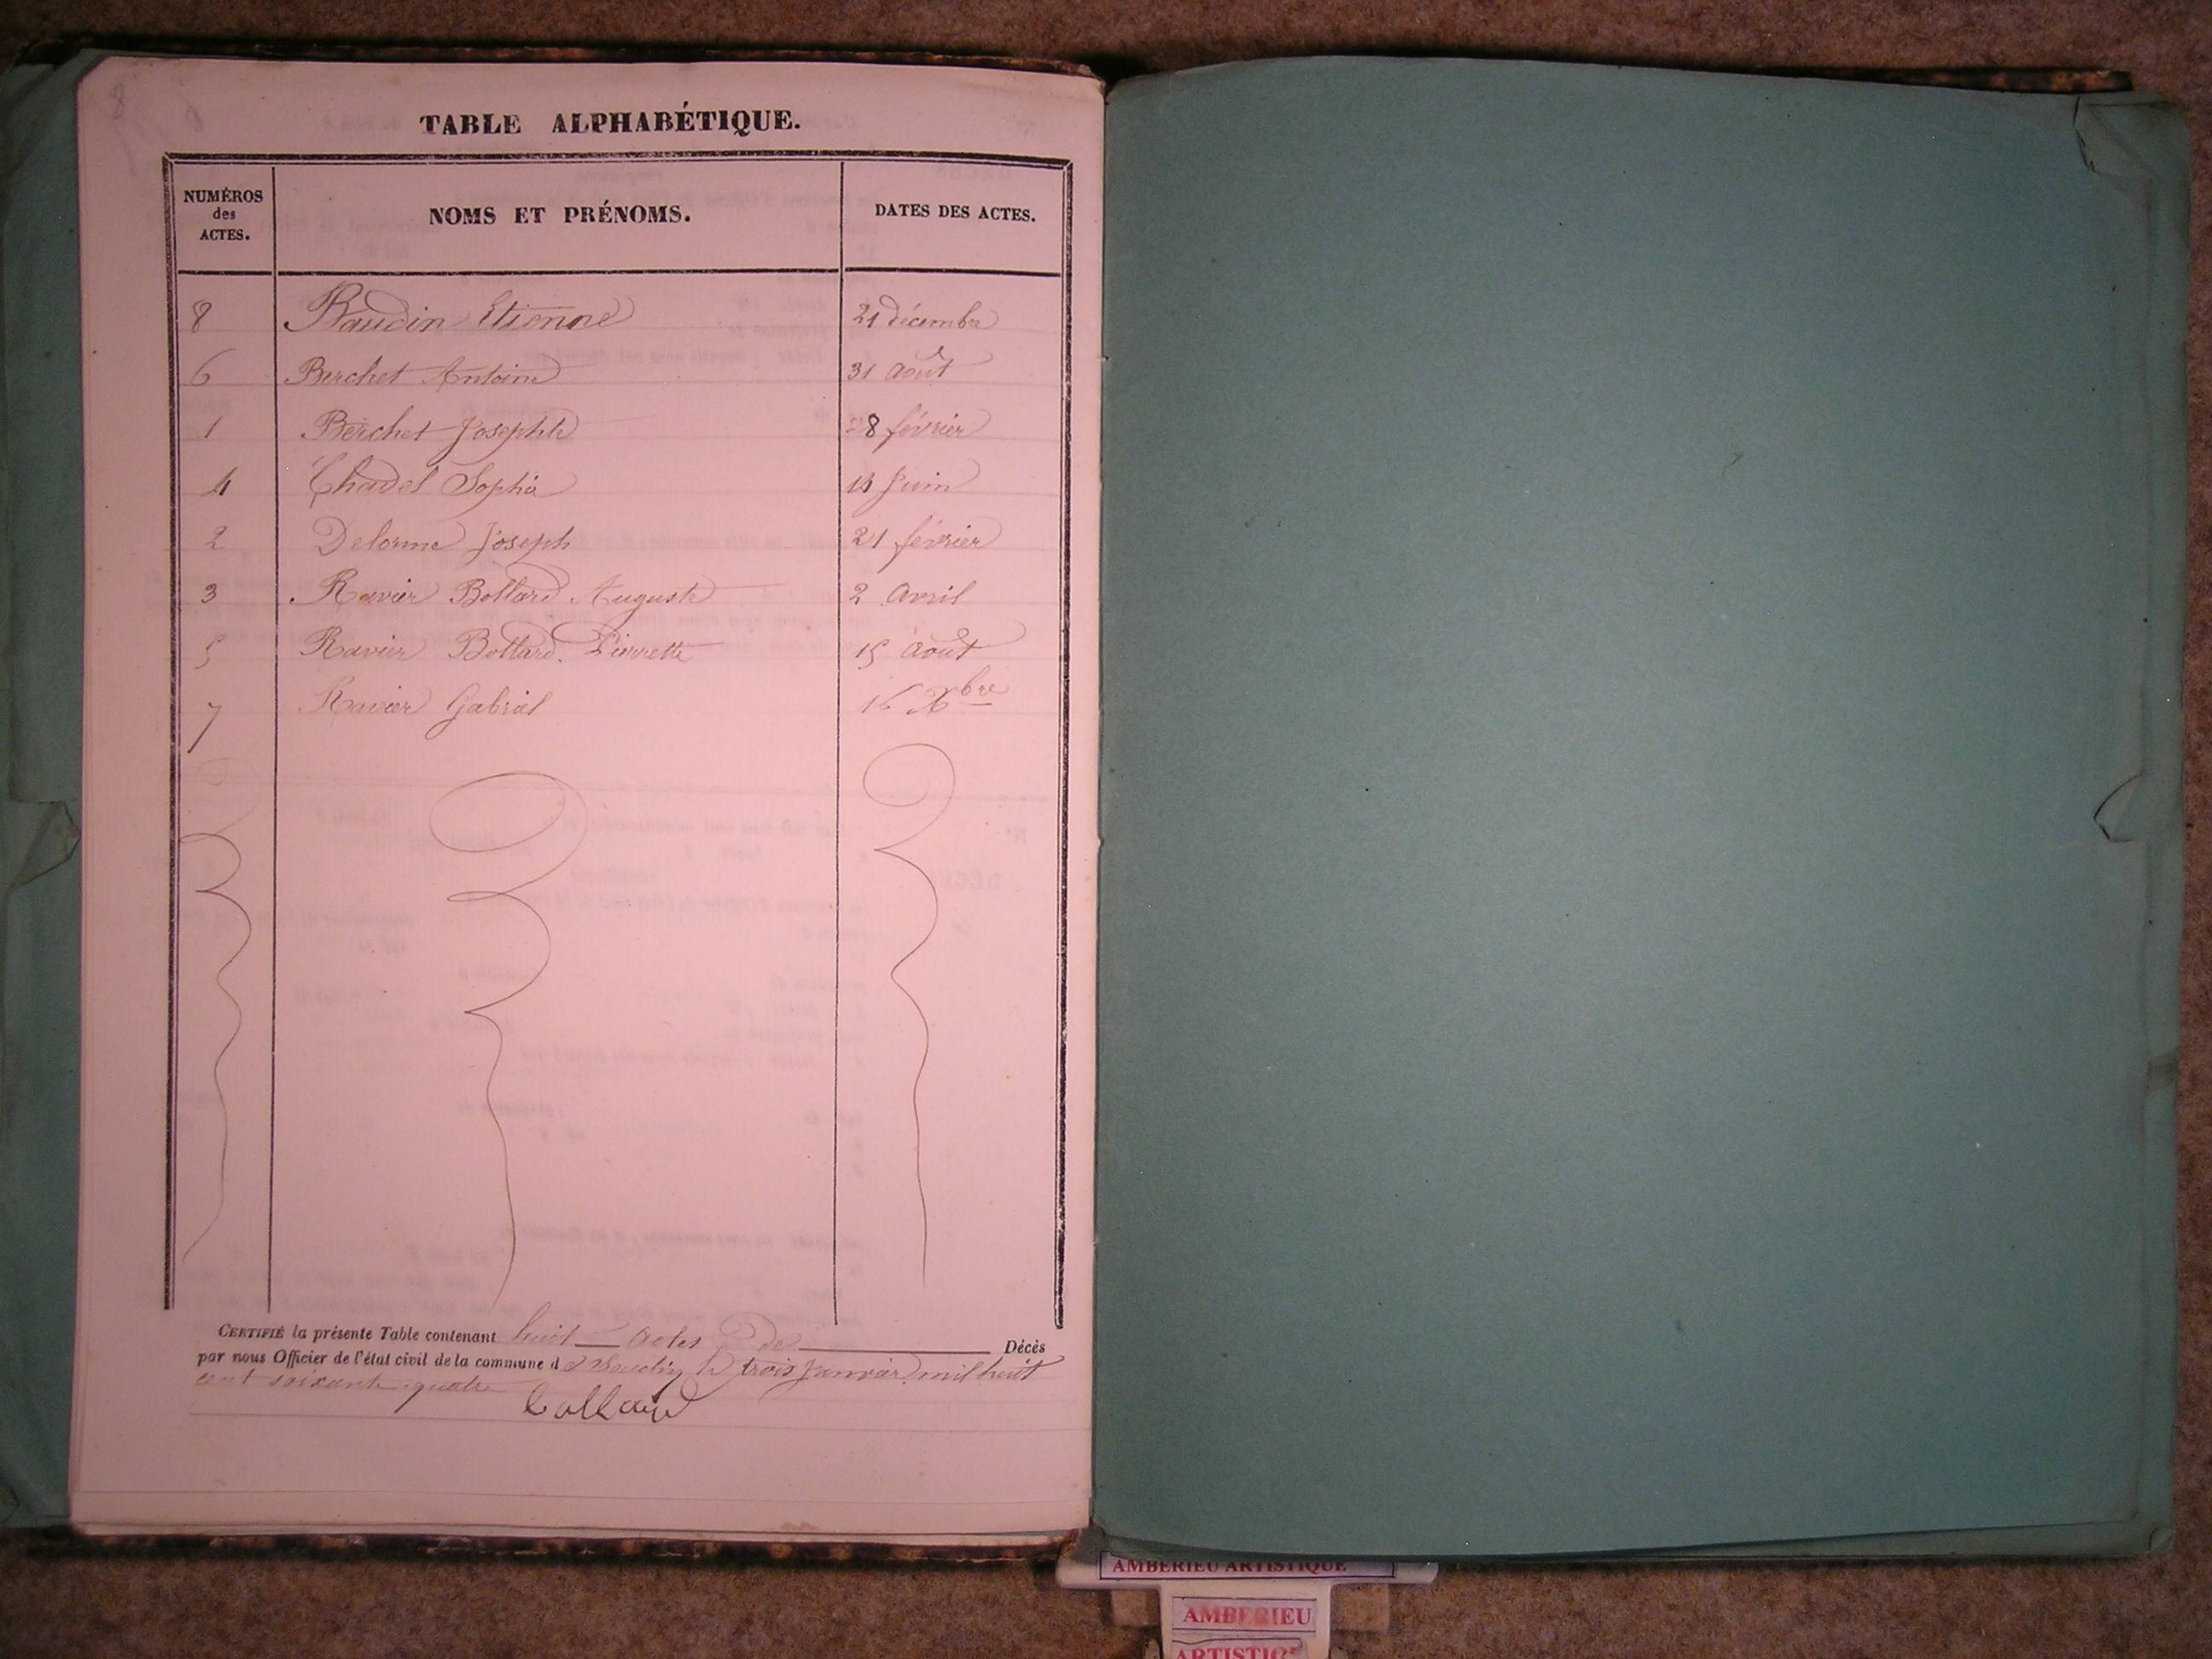 TABLE ALPHABÉTIQUE.
NUMÉROS des ACTES. NOMS ET PRÉNOMS. DATES DES ACTES.
8 Baudin Etienne 21 décembre
6 Berchet Antoine 31 Août
1 Berchet Josephte 28 février
4 Chadel Sophie Juin
2 Delorme Joseph 21 février
3 Ravier Bollard Auguste 2 Avril
5 Ravier Bollard Pierrette 15 Août
7 Ravier Gabriel 16 Xbre
CERTIFIÉ la présente Table contenant huit actes De Décès
par nous Officier de l'état civil de la commune de le trois Janvier mil huit
cent soixante quatre
AMBERIEU ARTISTIQUE
AMBERIEU
ARTISTIQUE